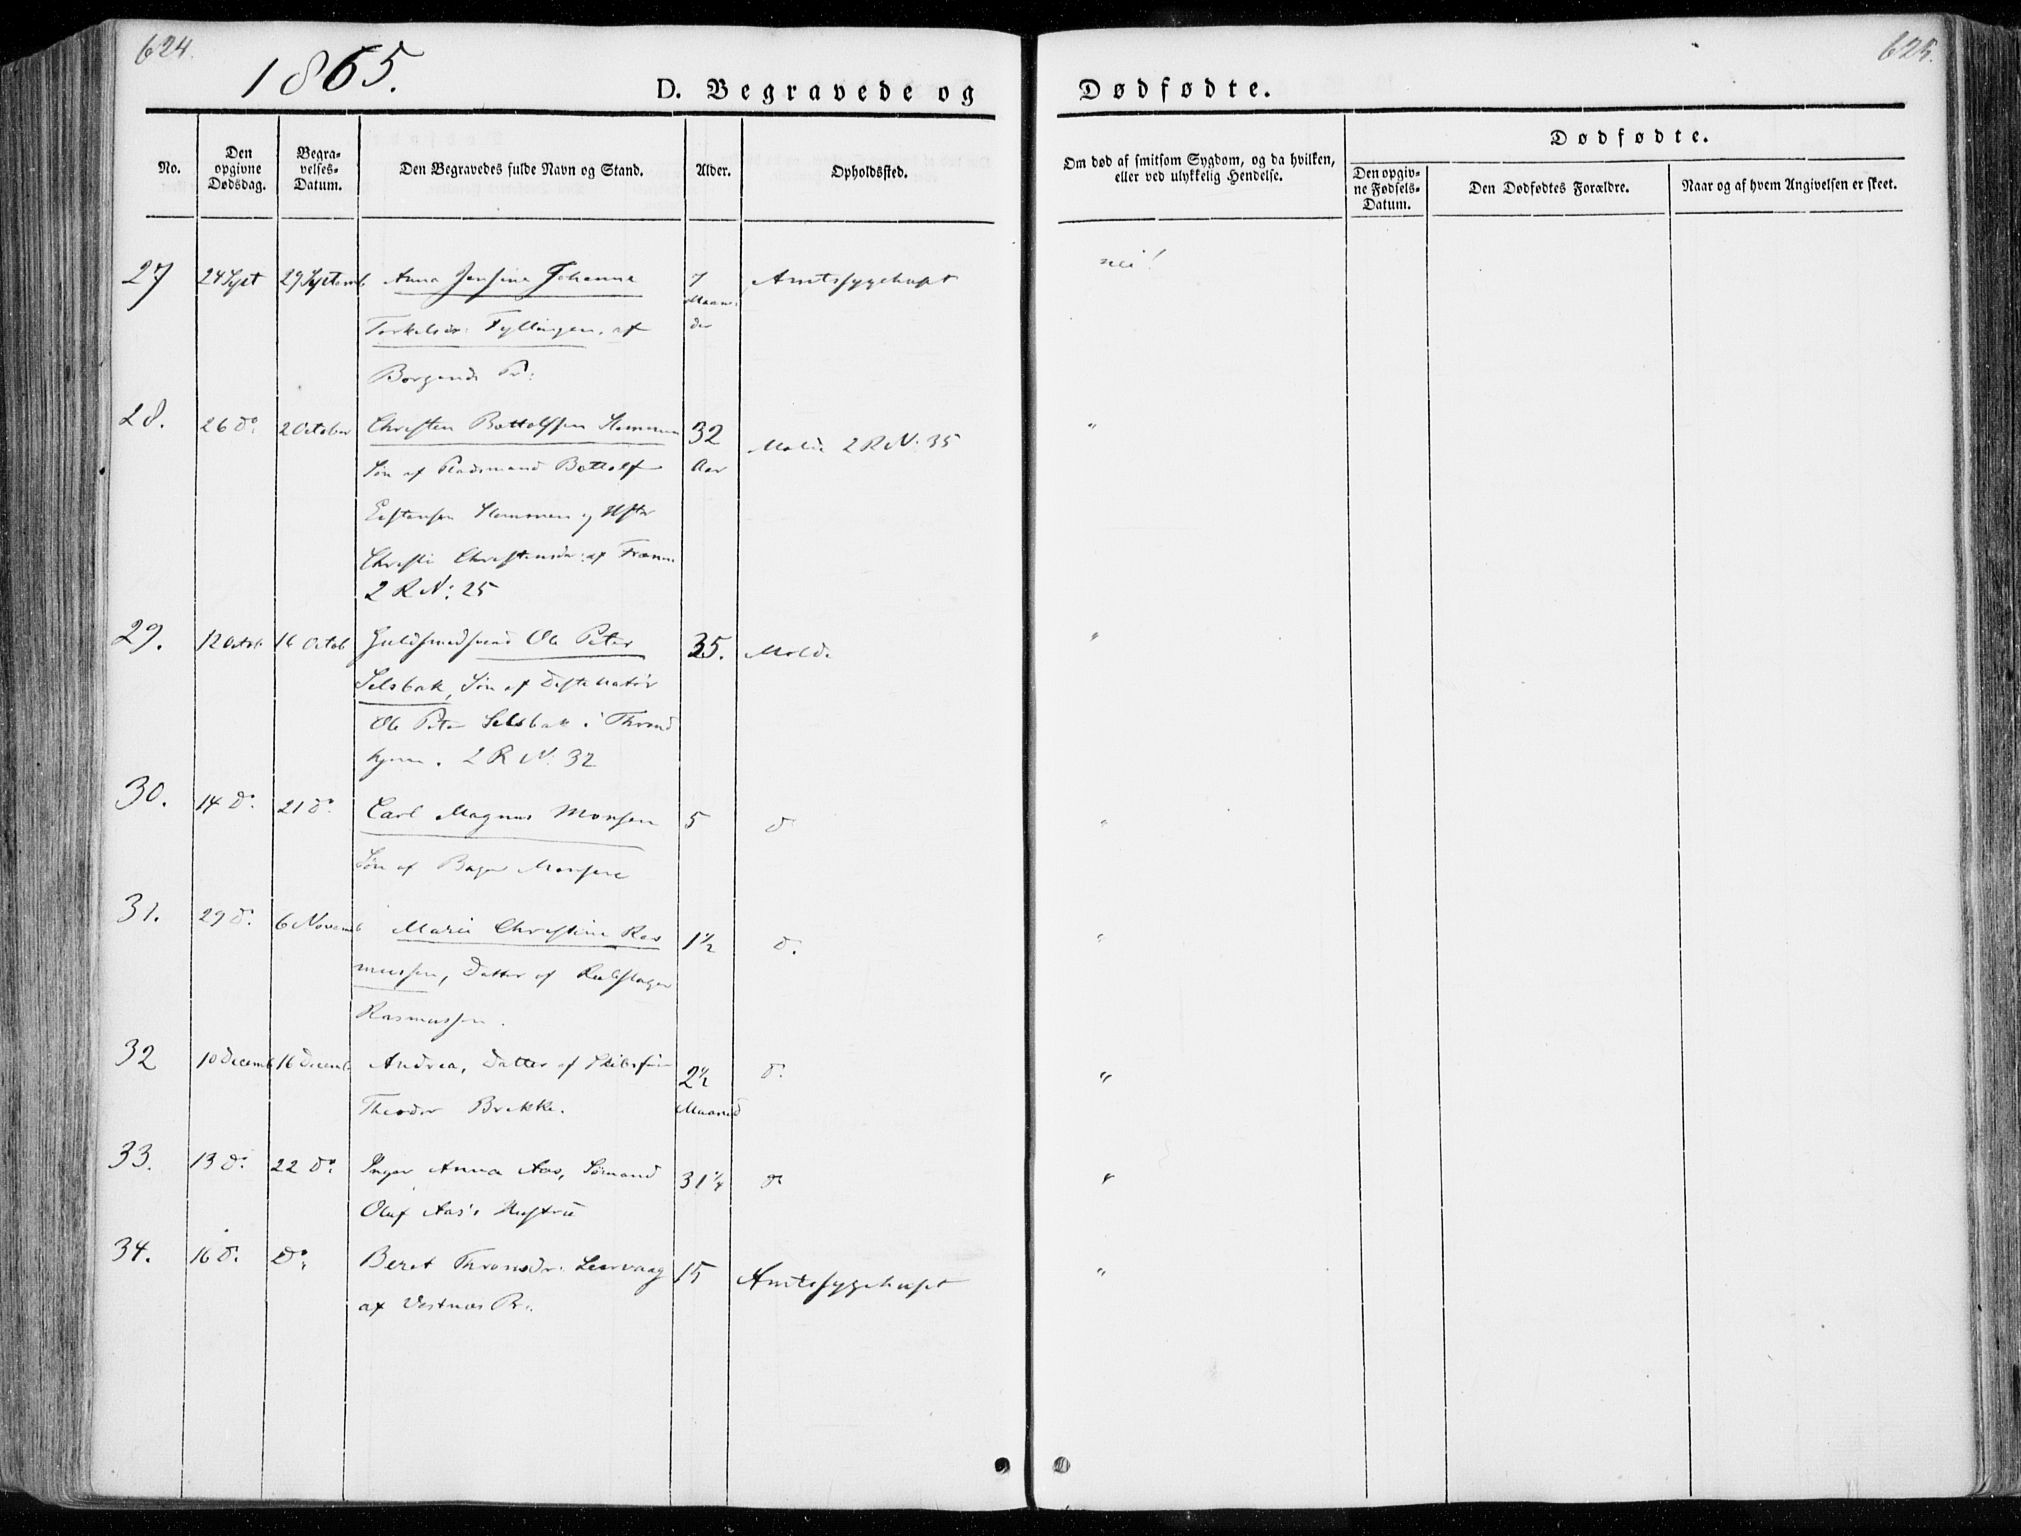 624.
625.
1865.
D. Begravede og
Dødfødte.
No.
Den opgivne Dødsdag.
Begra-velses-Datum.
Den Begravedes fulde Navn og Stand.
Alder.
Opholdssted.
Om død af smitsom Sygdom, og da hvilken, eller ved ulykkelig Hendelse.
Dødfødte.
Den opgiv-ne Fødsels-Datum.
Den Dødfødtes Forældre.
Naar og af hvem Angivelsen er skeet.
27 24 Sept 29 Septemb Anna Jensine Johanna 7 Amtssygehuset nei!
Torkelsdr: Fyllingen, af Maane-
der
Borgunds Pr:
28. 26 do. 2 October Christen Bottolfsen Hammer 32 Molde 2 R N: 35 "
Søn af Pladsmand Bottolf Aar
Eistensen og Ustr
Christi Christensdr: af Fræne
2 R N: 25
29. 12 Octob 16 Octob Guldsmedsvend Ole Peter 35. Molde "
Selsbak, Søn af Destillatør
Ole Peter Selsbak i Thrond
hjem. 2 R N: 32
30. 14 do. 21 do. Carl Magnus Monsen 5 do "
Søn af Bager Monsen
31. 29 do. 6 Novemb Marie Christine Ras 1½ do. "
mussen, Datter af Rebslager
Rasmussen.
32 10 Decemb 16 Decemb Andrea, Datter af 2½ do. "
Theodor Brekke. Maaned
33. 13 do. 22 do. Inger Anna Aas, Sømand 31¼ do "
Oluf Aas's Hustru
34. 16 do. do. Beret Thronsdr: Leervaag 15 Amtssygehuset "
af Vestnæs Pr: